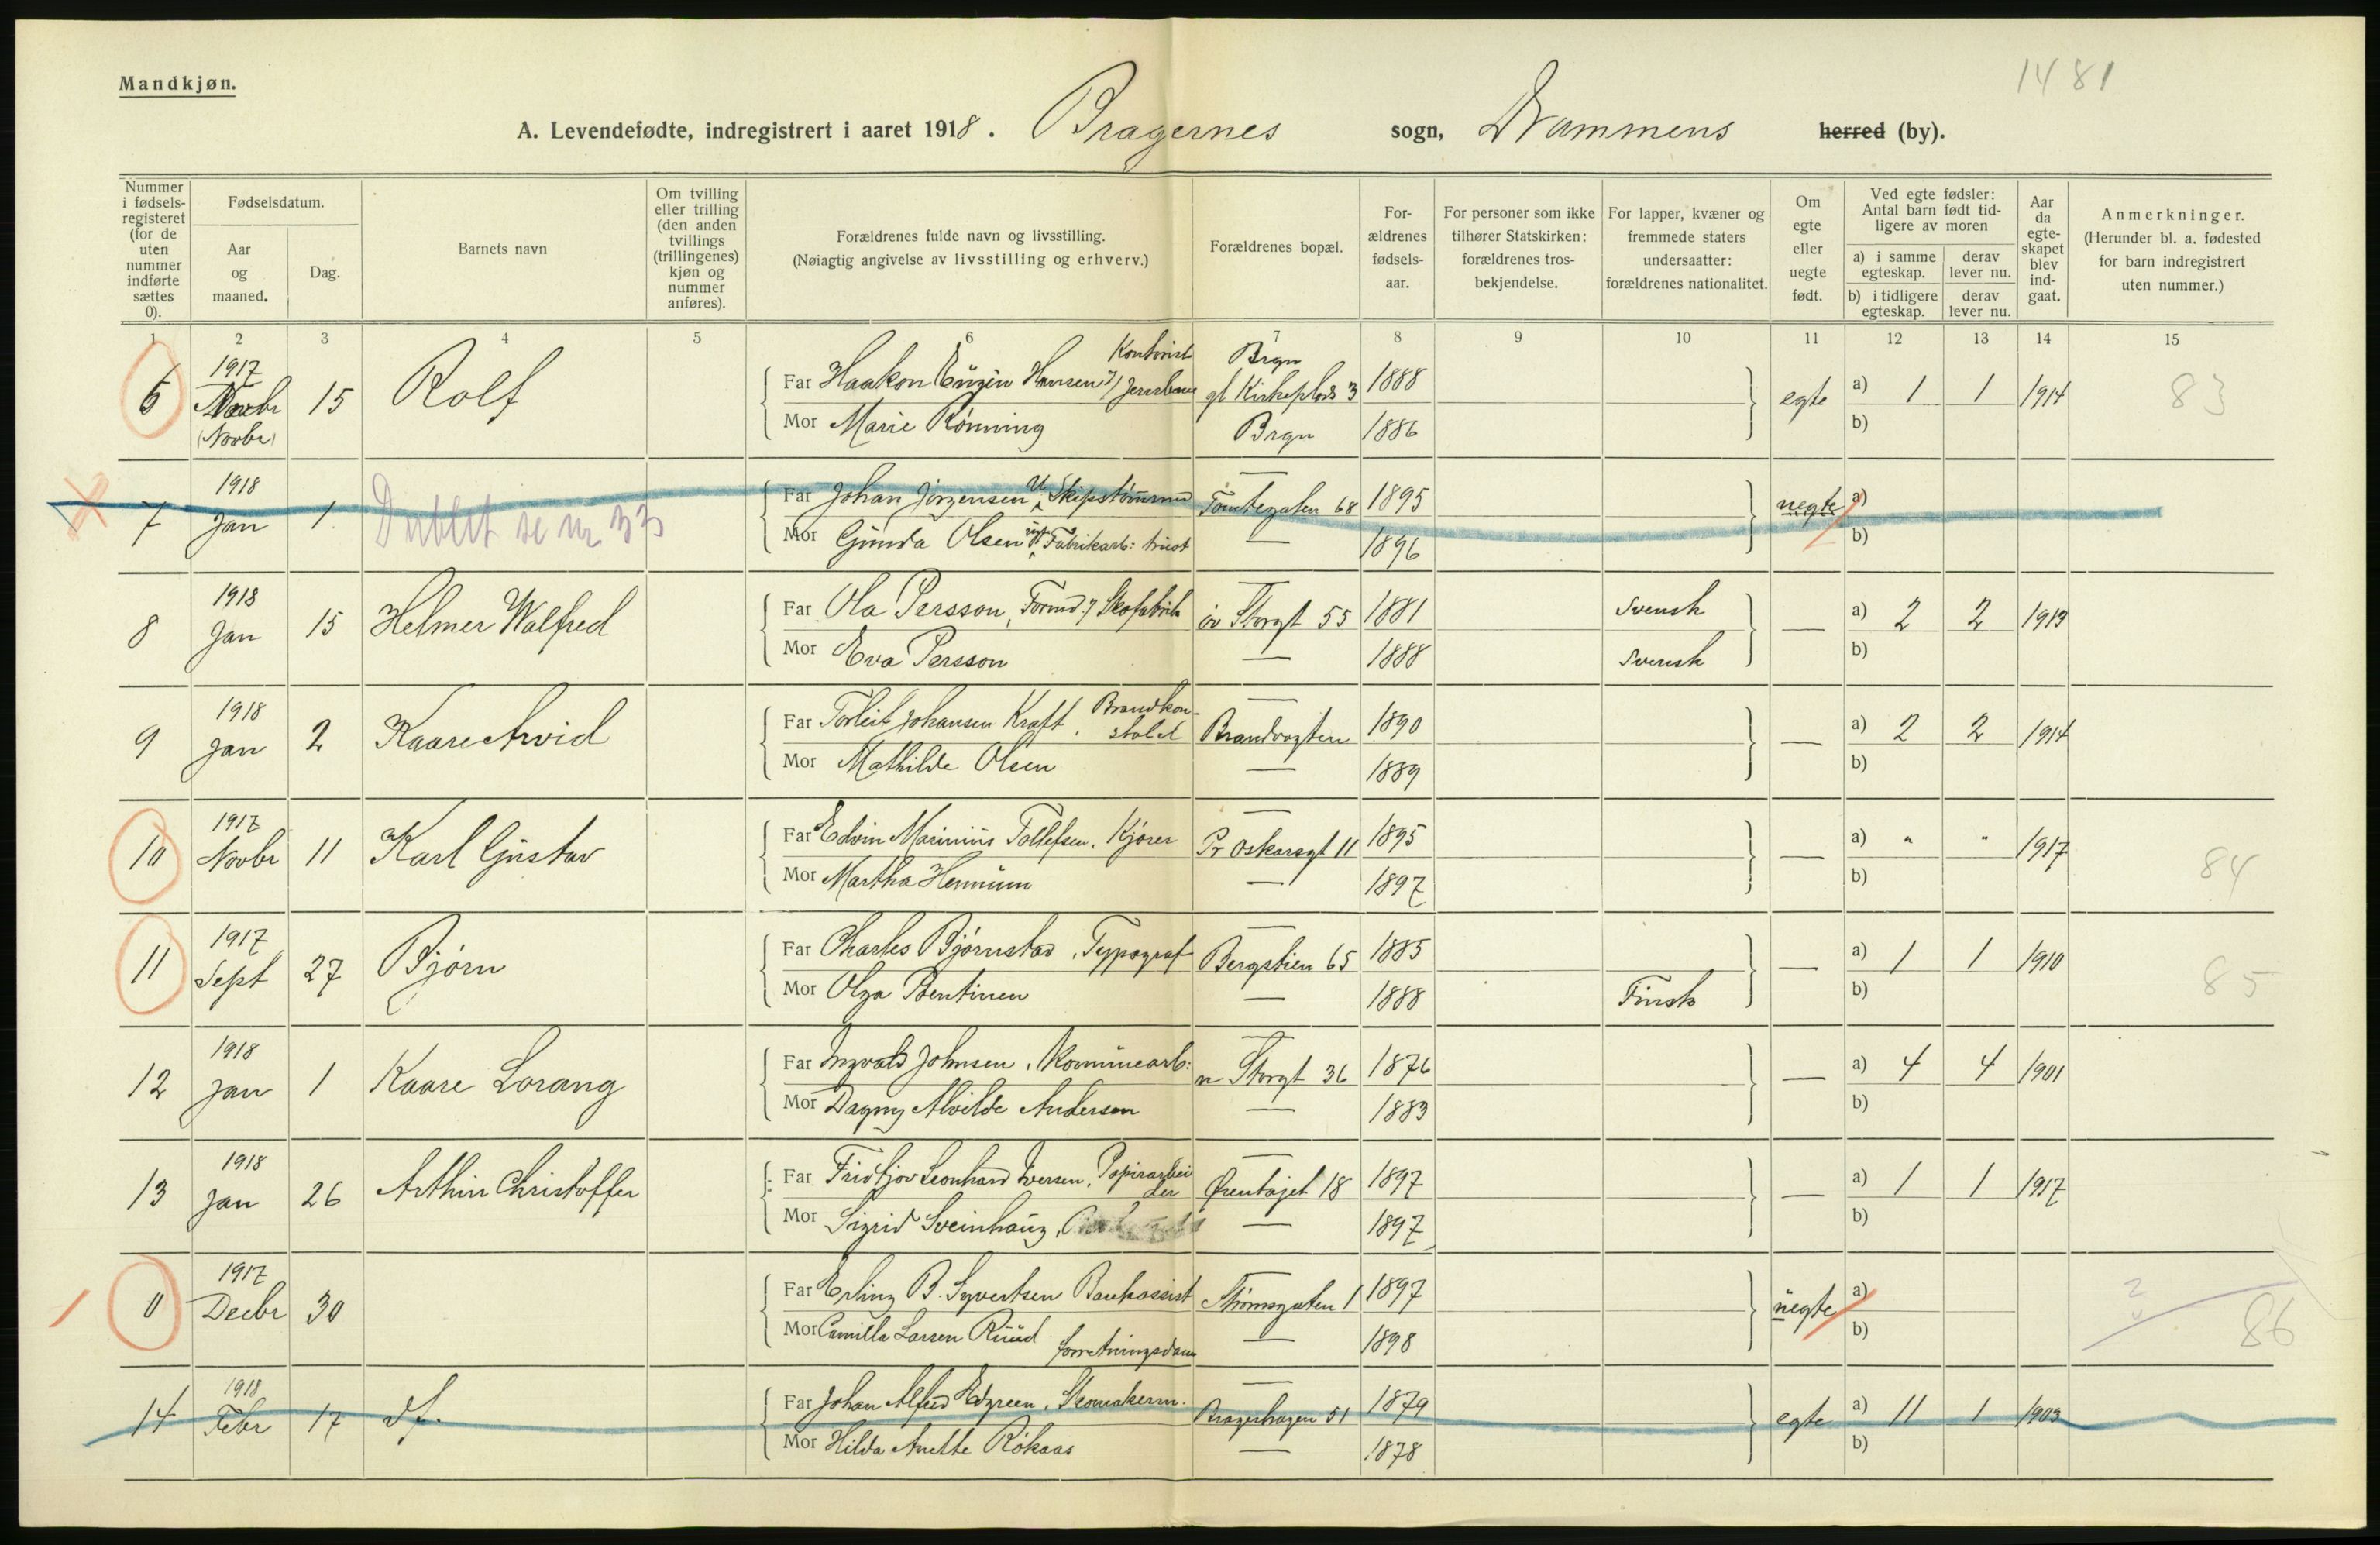 1481
Mandkjøn.
A. Levendefødte, indregistrert i aaret 1918. Bragernes sogn, Drammens herred (by).
Nummer i fødsels-registeret (for de uten nummer indførte sættes 0).
Fødselsdatum.
Aar og maaned.
Dag.
Barnets navn
Om tvilling eller trilling (den anden tvillings (trillingenes) kjøn og nummer anføres).
Forældrenes fulde navn og livsstilling.
(Nøiagtig angivelse av livsstilling og erhverv.)
Forældrenes bopæl.
For-ældrenes fødsels-aar.
For personer som ikke tilhører Statskirken: forældrenes tros-bekjendelse.
For lapper, kvæner og fremmede staters undersaatter: forældrenes nationalitet.
Om egte eller uegte født.
Ved egte fødsler: Antal barn født tid-ligere av moren
a) i samme egteskap. derav lever nu.
b) i tidligere egteskap. derav lever nu.
Aar da egte-skapet blev ind-gaat.
Anmerkninger.
(Herunder bl. a. fødested for barn indregistrert uten nummer.)
1 2 3 4 5 6 7 8 9 10 11 12 13 14 15
6 1917 Novbr (Novbr) 15 Rolf
Far Haakon Eugen Hansen, Kontorist Jernbane Brgn gl Kirkeplads 3 1888 egte a) 1 1 1914 83
Mor Marie Rønning Brgn 1886 b)
7 1918 Jan 1 Dublet se nr 33
Far Johan Jørgensen U. Skipstømmm Tomtegaten 68 1895 uegte a)
Mor Gunda Olsen ugt Fabrikarb: — 1896 b)
8 1918 Jan 15 Helmer Walfred
Far Ola Persson, Formd. Skofabrik øv Storgt 55 1881 Svensk — a) 2 2 1913
Mor Eva Persson — 1888 Svensk b)
9 1918 Jan 2 Kaare Arvid
Far Torleif Johansen Kraft, Brandkonstabel Brandvagten 1890 — a) 2 2 1914
Mor Mathilde Olsen — 1889 b)
10 1917 Novbr 11 Karl Gustav
Far Edvin Marinius Tollefsen, Kjører Pr Oskarsgt 11 1895 — a) " " 1917 84
Mor Martha Hennum — 1897 b)
11 1917 Sept 27 Bjørn
Far Charles Bjørnstad, Typograf Bergstien 65 1885 — a) 1 1 1910 85
Mor Olga Pentinen — 1888 Finsk b)
12 1918 Jan 1 Kaare Lorang
Far Ingvald Johnsen, Kommunearb: n Storgt 36 1876 — a) 4 4 1901
Mor Dagny Alvilde Andersen — 1883 b)
13 1918 Jan 26 Arthur Christoffer
Far Fridtjov Leonhard Iversen, Papirarbeider Ørentøjet 18 1897 — a) 1 1 1917
Mor Sigrid Sveinhaug, — 1897 b)
0 1917 Decbr 30
Far Erling B. Syvertsen Bankassist Strømsgaten 1 1897 uegte a) 86
Mor Camilla Larsen Ruud forretningsdame — 1898 b)
14 1918 Febr 17 df.
Far Johan Alfred Edgreen, Skomakerm. Bragerhagen 51 1879 egte a) 11 1 1903
Mor Hilda Anette Røkaas — 1878 b)